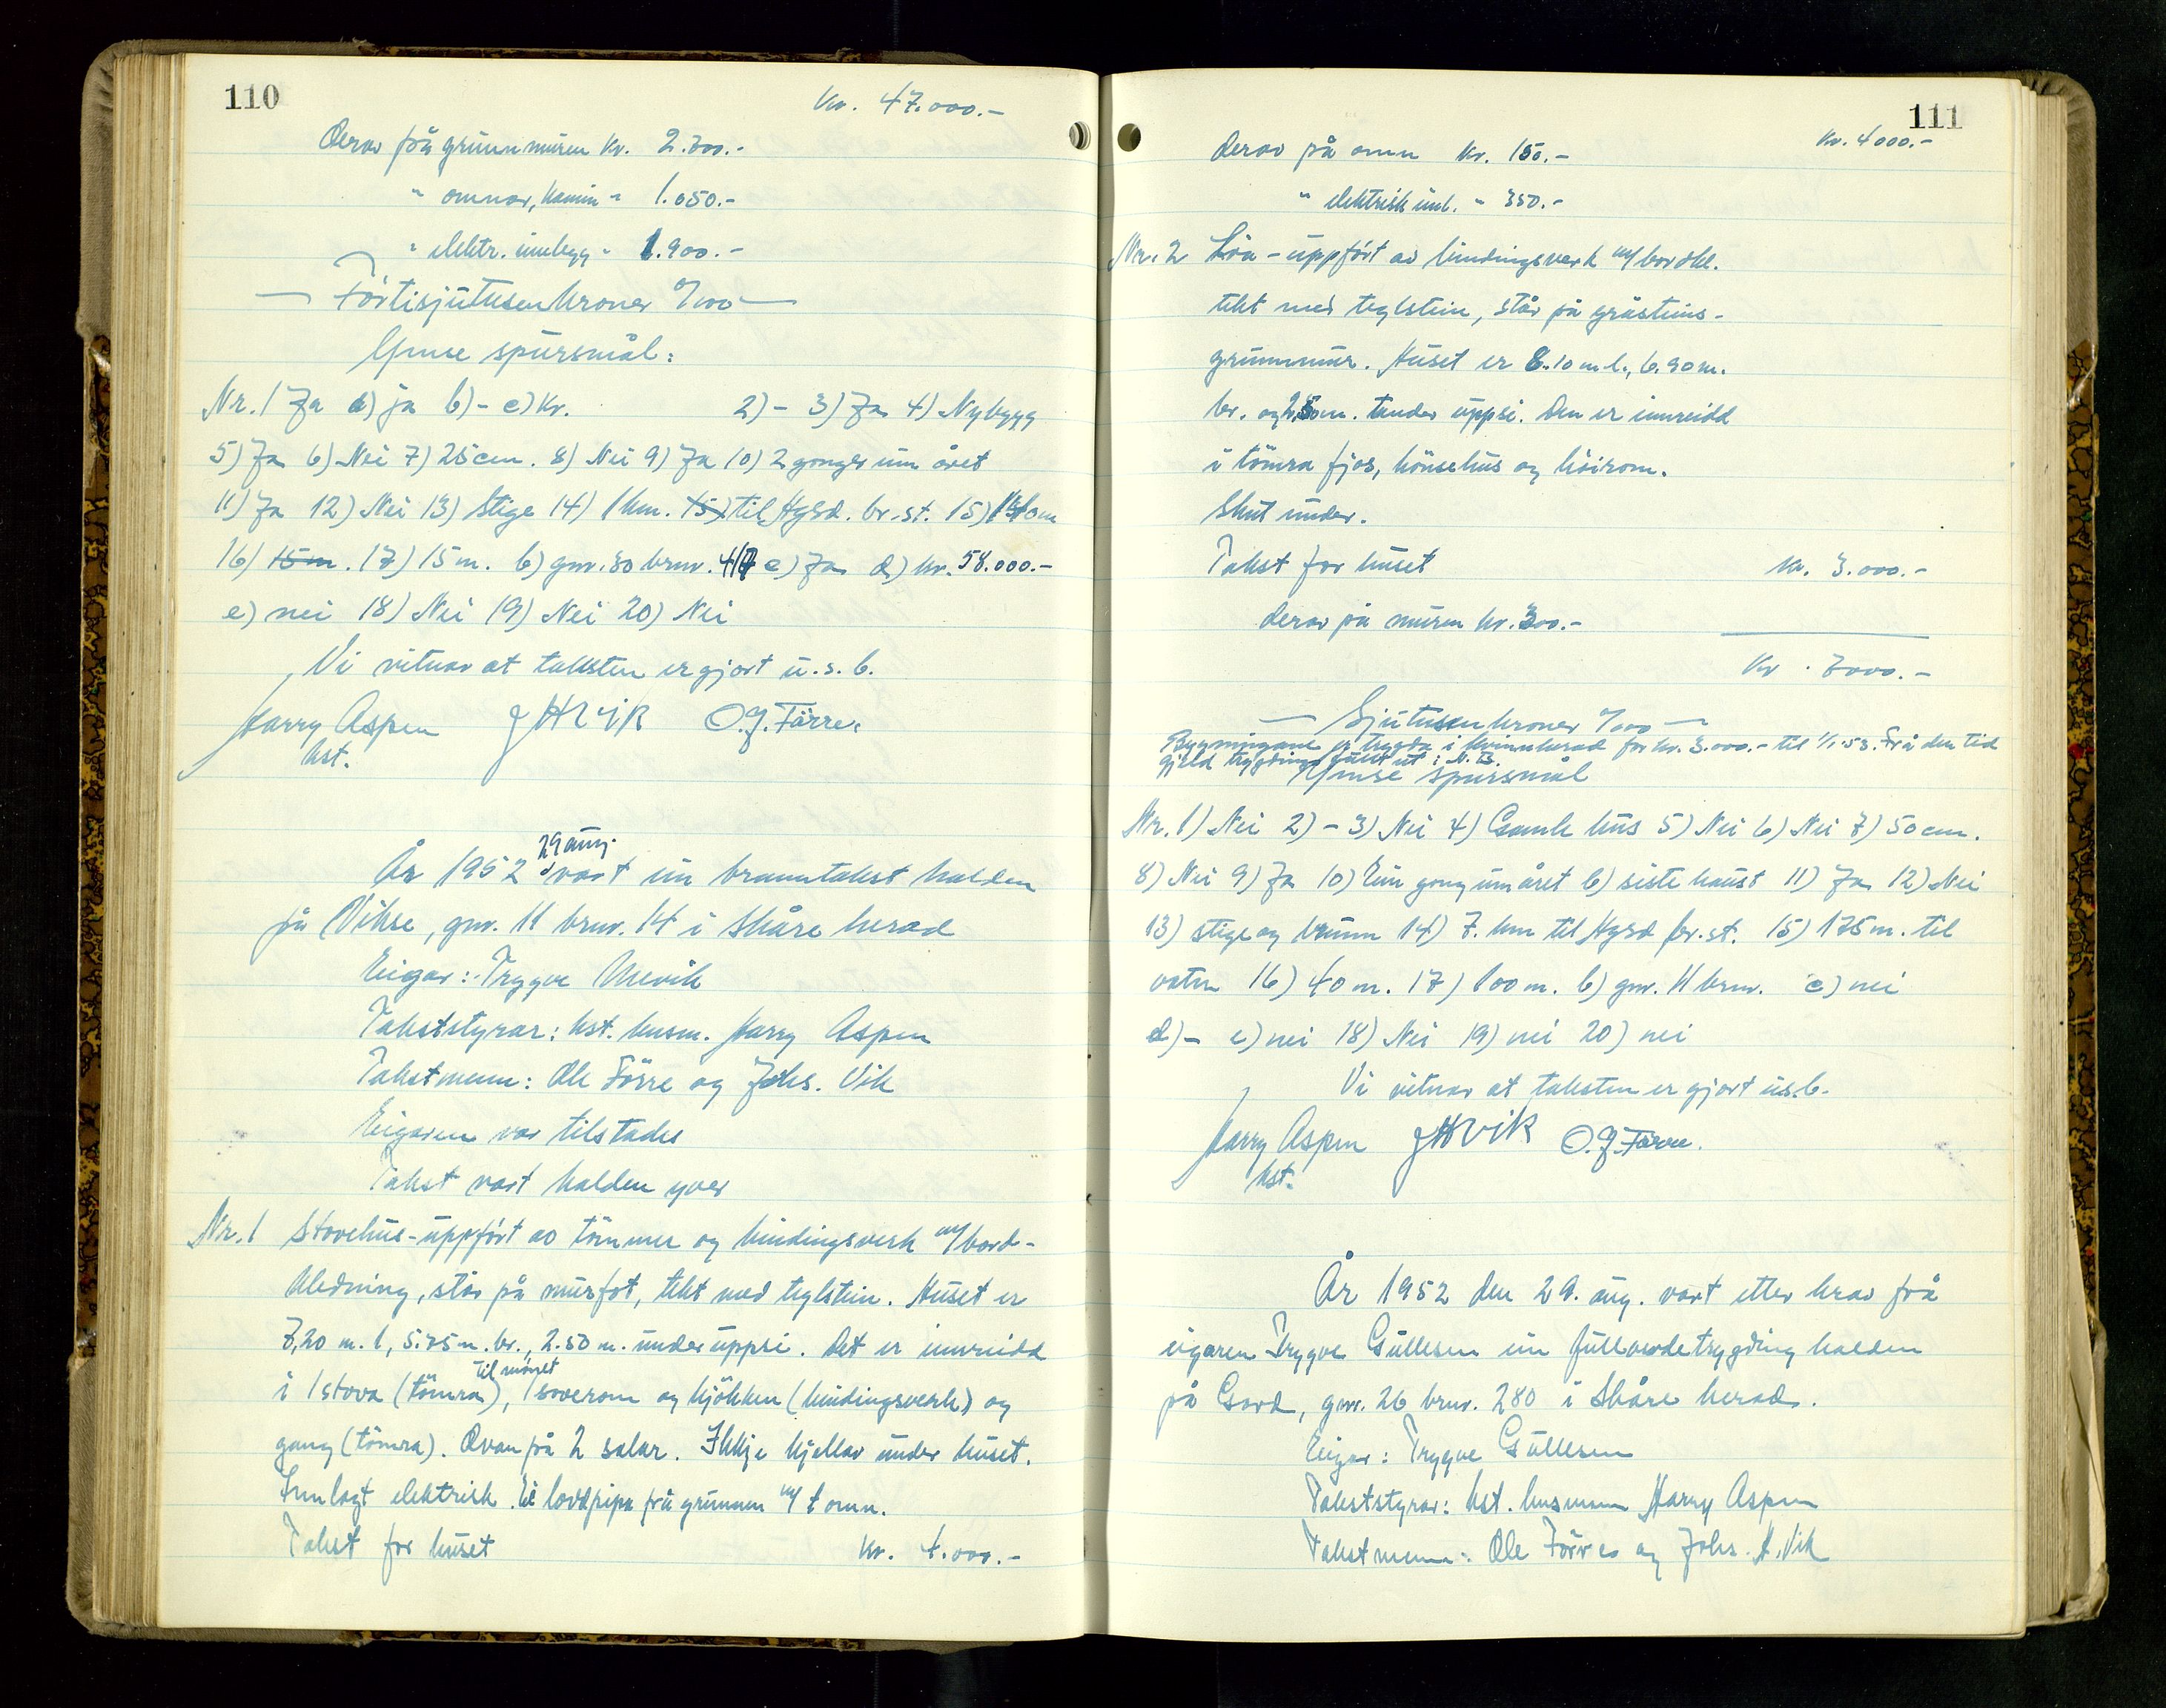 110
Kr. 47.000.-
Derav på grunnmuren Kr. 2.300.-
" omnar, kamin " 1.050.-
" elektr. innlegg " 1.900.-
—Förtisjutusenkroner 0/100 —
Ymse spursmål:
Nr. 1 Ja a) ja b) - c) Kr. 2) - 3) Ja 4) Nybygg
5) Ja 6) Nei 7) 25 cm. 8) Nei 9) Ja 10) 2 gonger um året
11) Ja 12) Nei 13) Stige 14) 1 km. 15) til Hgsd. br.st. 15) m
16) 15 m. 17) 15 m. b) gnr. 30 brnr. c) Ja d) kr. 58.000.-
e) nei 18) Nei 19) Nei 20) Nei
Vi vitnar at taksten er gjort u.s.b.
Harry Aspen JHVik O.J. Förre.
kst.
29 aug.
År 1952 vart ein branntakst halden
på Vikse, gnr. 11 brnr. 14 i Skåre herad
Eigar: Trygve
Takststyrar: kst. lensm. Harry Aspen
Takstmenn: Ole Förre og Johs. Vik
Eigaren var tilstades
Takst vart halden yver
Nr. 1 Stovehus - uppført av tömmer og bindingsverk m/bord-
kledning, står på murfot, tekt med teglstein. Huset er
7,20 m. l, 5.75 m. br., 2.50 m. under uppsi. Det er innreidd
til mönet
i 1 stova (tömra), 1 soverom og kjökken (bindingsverk) og
gang (tömra). Ovan på 2 salar. Ikkje kjellar under huset.
Innlagt elektrisk. Ei lovdpipa frå grunnen m/ 1 omn.
Takst for huset Kr. 4.000.-
111
Kr. 4000.-
derav på omn Kr. 150.-
" elektrisk innl. " 350.-
Nr. 2 Löa - uppført av bindingsverk m/bordkl.
tekt med teglstein, står på gråsteins-
grunnmur. Huset er 8.10 m l., 6.90 m.
br. og 2.50 m. under uppsi. Den er innreidd
i tömra fjos, hönsehus og höirom.
Skut under.
Takst for huset Kr. 3.000.-
derav på muren kr. 300.-
Kr. 7000.-
— Sjutusenkroner 0/100 —
Bygningane er trygda i Kvinnherad for kr. 3.000.- til 1/1-53. Frå den tid
gjeld trygdinga fullt ut i N. B.
Ymse spursmål
Nr. 1) Nei 2) - 3) Nei 4) Gamle hus 5) Nei 6) Nei 7) 50 cm.
8) Nei 9) Ja 10) Ein gong um året b) siste haust 11) Ja 12) Nei
13) stige og brunn 14) 7. km til Hgsd br.st. 15) 175 m. til
vatn 16) 40 m. 17) 100 m. b) gnr. 11 brnr. c) nei
d) - e) nei 18) Nei 19) nei 20) nei
Vi vitnar at taksten er gjort u.s.b.
Harry Aspen JHVik O.J. Förre.
kst.
År 1952 den 29. aug. vart etter krav frå
eigaren Trygve Gullesen ein fullverdetrygding halden
på Gard, gnr. 26 brnr. 280 i Skåre herad.
Eigar: Trygve Gullesen
Takststyrar: kst. lensmann Harry Aspen
Takstmenn: Ole Förre og Johs. H. Vik